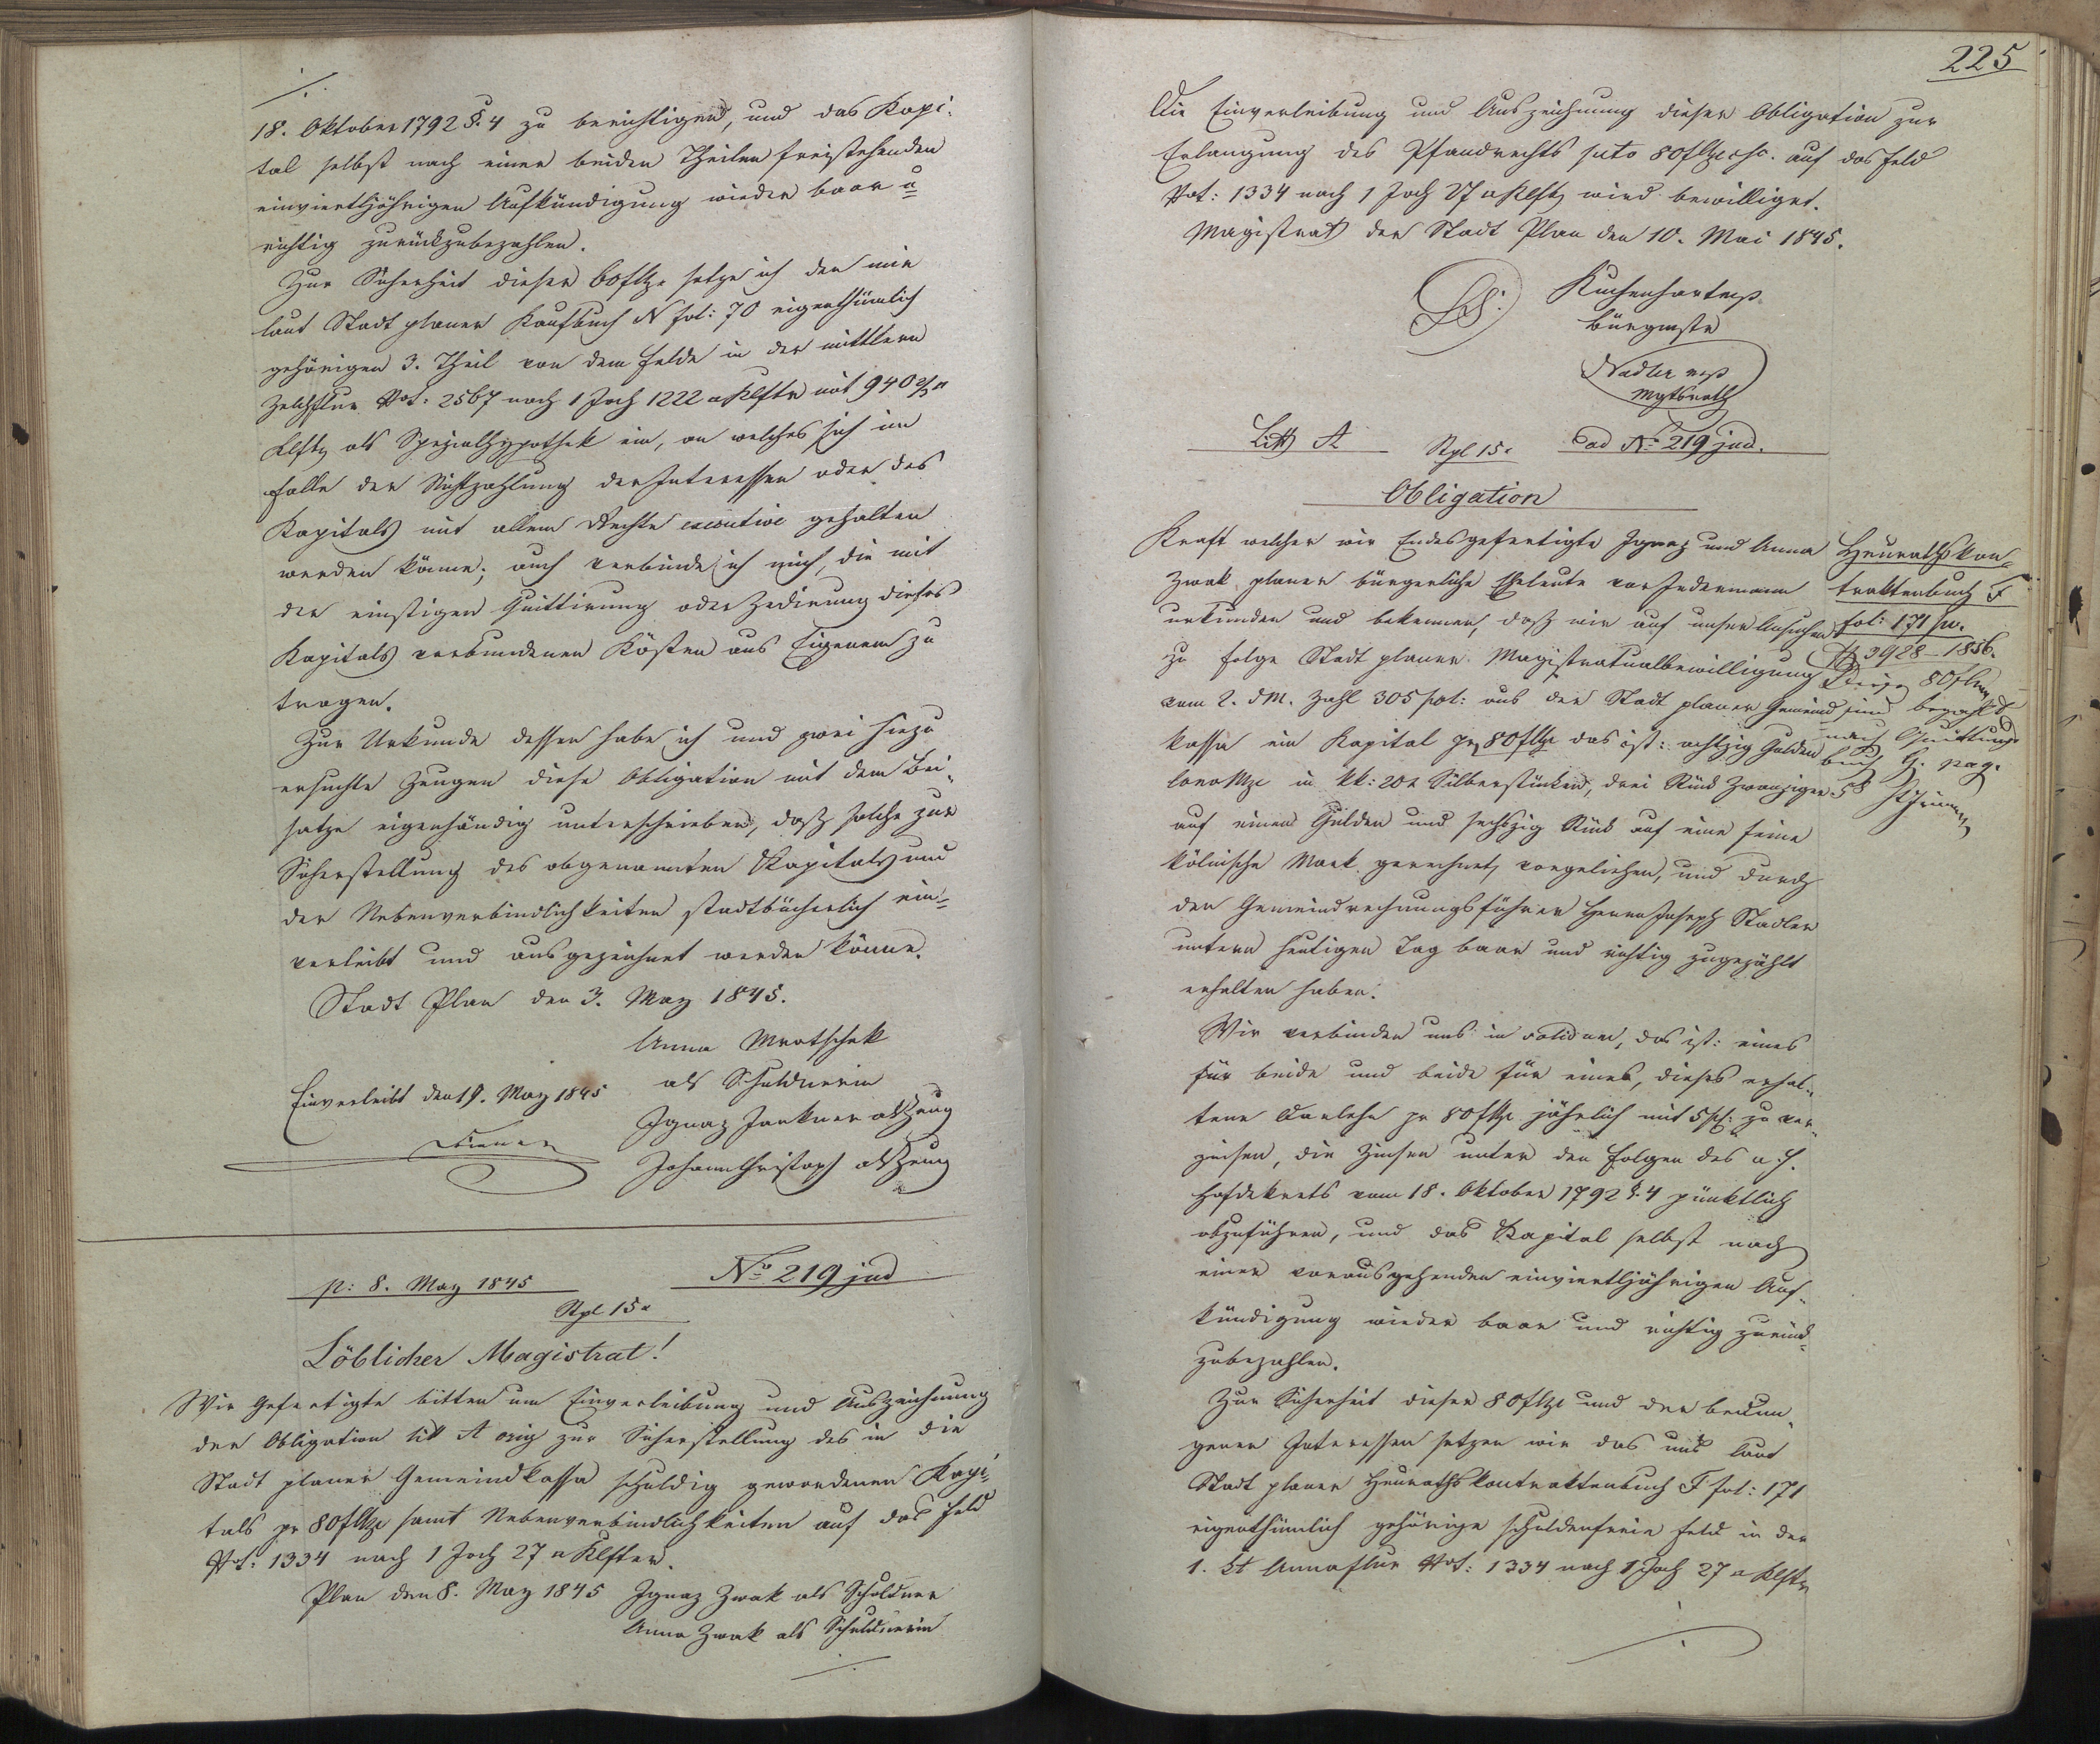 18. Oktober 1792 §. 4 zu berichtigen, und das Kapi-
tal selbst nach einer beiden Theilen freistehenden
einvierteljährigen Aufkündigung wieder baar u
richtig zurückzubezahlen.
Zur Sicherheit dieser 60 f setze ich den mir
laut Stadt planer Kaufbuch N fol: 70 eigenthümlich
gehörigen 3. Theil von dem Felde in der mittlern
2567 nach 1 Joch 1222 □Klftr mit 940 2/3 □
Klftr als Spezialhypothek ein, an welches sich im
Falle der Nichtzahlung der Interessen oder des
Kapitals mit allem Rechte executive gehalten
werden könne; auch verbinde ich mich, die mit
der einstigen Quittirung oder Zedirung dieses
Kapitals verbundenen Kösten aus Eigenem zu
tragen.
Zur Urkunde dessen habe ich und zwei hiezu
ersuchte Zeugen diese Obligation mit dem Bei-
satze eigenhändig unterschrieben, daß solche zur
Sicherstellung des obgenannten Kapitals und
der Nebenverbindlichkeiten stadtbücherlich ein-
verleibt und ausgezeichnet werden könne.
Stadt Plan den 3. May 1845.
Anna Mrotschek
als Schuldnerin
Einverleibt den 19. May 1845
Ignaz Junkner als Zeug
Johann Christoph als Zeug
p: 8. May 1845
No 219 jud
Stpl 15 x
Löblicher Magistrat!
Wir Gefertigte bitten um Einverleibung und Auszeichnung
der Obligation litt A orig zur Sicherstellung des in die
Stadt planer Gemeindkassa schuldig gewordenen Kapi-
tals pr 80 f samt Nebenverbindlichkeiten auf das Feld
1334 nach 1 Joch 27 □Klfter.
Plan den 8. May 1845 Ignaz Zwak als Schuldner
Anna Zwak als Schuldnerin
225
Die Einverleibung und Auszeichnung dieser Obligation zur
Erlangung des Pfandrechts pcto 80 f auf das Feld
1334 nach 1 Joch 27 □Klftr wird bewilliget.
Magistrat der Stadt Plan den 10. Mai 1845.
LS.
Bürgmstr
Nadler mp
Mgtsrath
Litt A
Stpl 15 x
ad No 219 jud.
Obligation
Kraft welcher wir Endesgefertigte Ignaz und Anna
Zwak planer bürgerliche Eheleute vor Jedermann
urkunden und bekennen, daß wir auf unser Ansuchen
zu Folge Stadt planer Magistratualbewilligung
vom 2. dM. Zahl 305 pol: aus der Stadt planer Gemeind
kassa ein Kapital pr 80 f das ist: achtzig Gulden
in kk: 20 x Silberstücken, drei Stück Zwanziger
auf einen Gulden und sechszig Stück auf eine feine
kölnische Mark gerechnet, vorgeliehen, und durch
den Gemeindrechnungsführer Herrn Joseph Stadler
unterm heutigen Tag baar und richtig zugezählt
erhalten haben.
Heuraths kon-
traktenbuch F
fol: 171
3928-1856.
80 f
sind bezahlt
nach Quittungs
buch G. pag.
58
Wir verbinden uns in solidum, das ist: eines
für beide und beide für eines, dieses erhal-
tene Darlehn pr 80 f jährlich mit 5 pC: zu ver-
zinsen, die Zinsen unter den Folgen des a. h.
Hofdekrets vom 18. Oktober 1792 §. 4 pünktlich
abzuführen, und das Kapital selbst nach
einer vorausgehenden einvierteljährigen Auf-
kündigung wieder baar und richtig zurück-
zubezahlen.
Zur Sicherheit dieser 80 f und der bedun-
genen Interessen setzen wir das uns laut
Stadt planer Heurathskontraktenbuch F fol: 171
eigenthümlich gehörige schuldenfreie Feld in der
1. St Annaflur 1334 nach 1 Joch 27 □Klftr